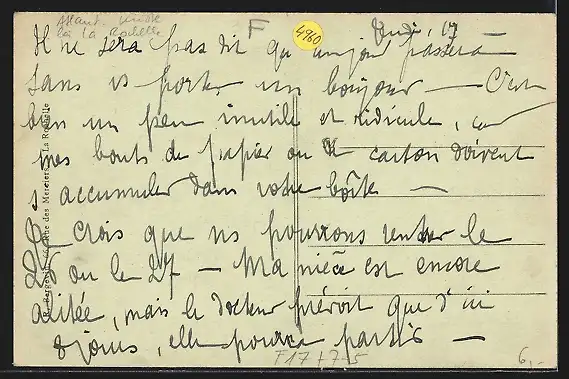 Vendr. 17
Il ne sera pas dit qu'un jour passera
sans vs porter un bonjour — C'est
bien un peu inutile et ridicule, car
mes bouts de papier ou de carton doivent
s'accumuler dans votre boîte —
Je crois que ns pourrons rentrer le
26 ou le 27 — Ma nièce est encore
alitée, mais le docteur prévoit que d'ici
8 jours, elle pourra partir —
F
4960
La Rochelle
F17+7-5
6,-